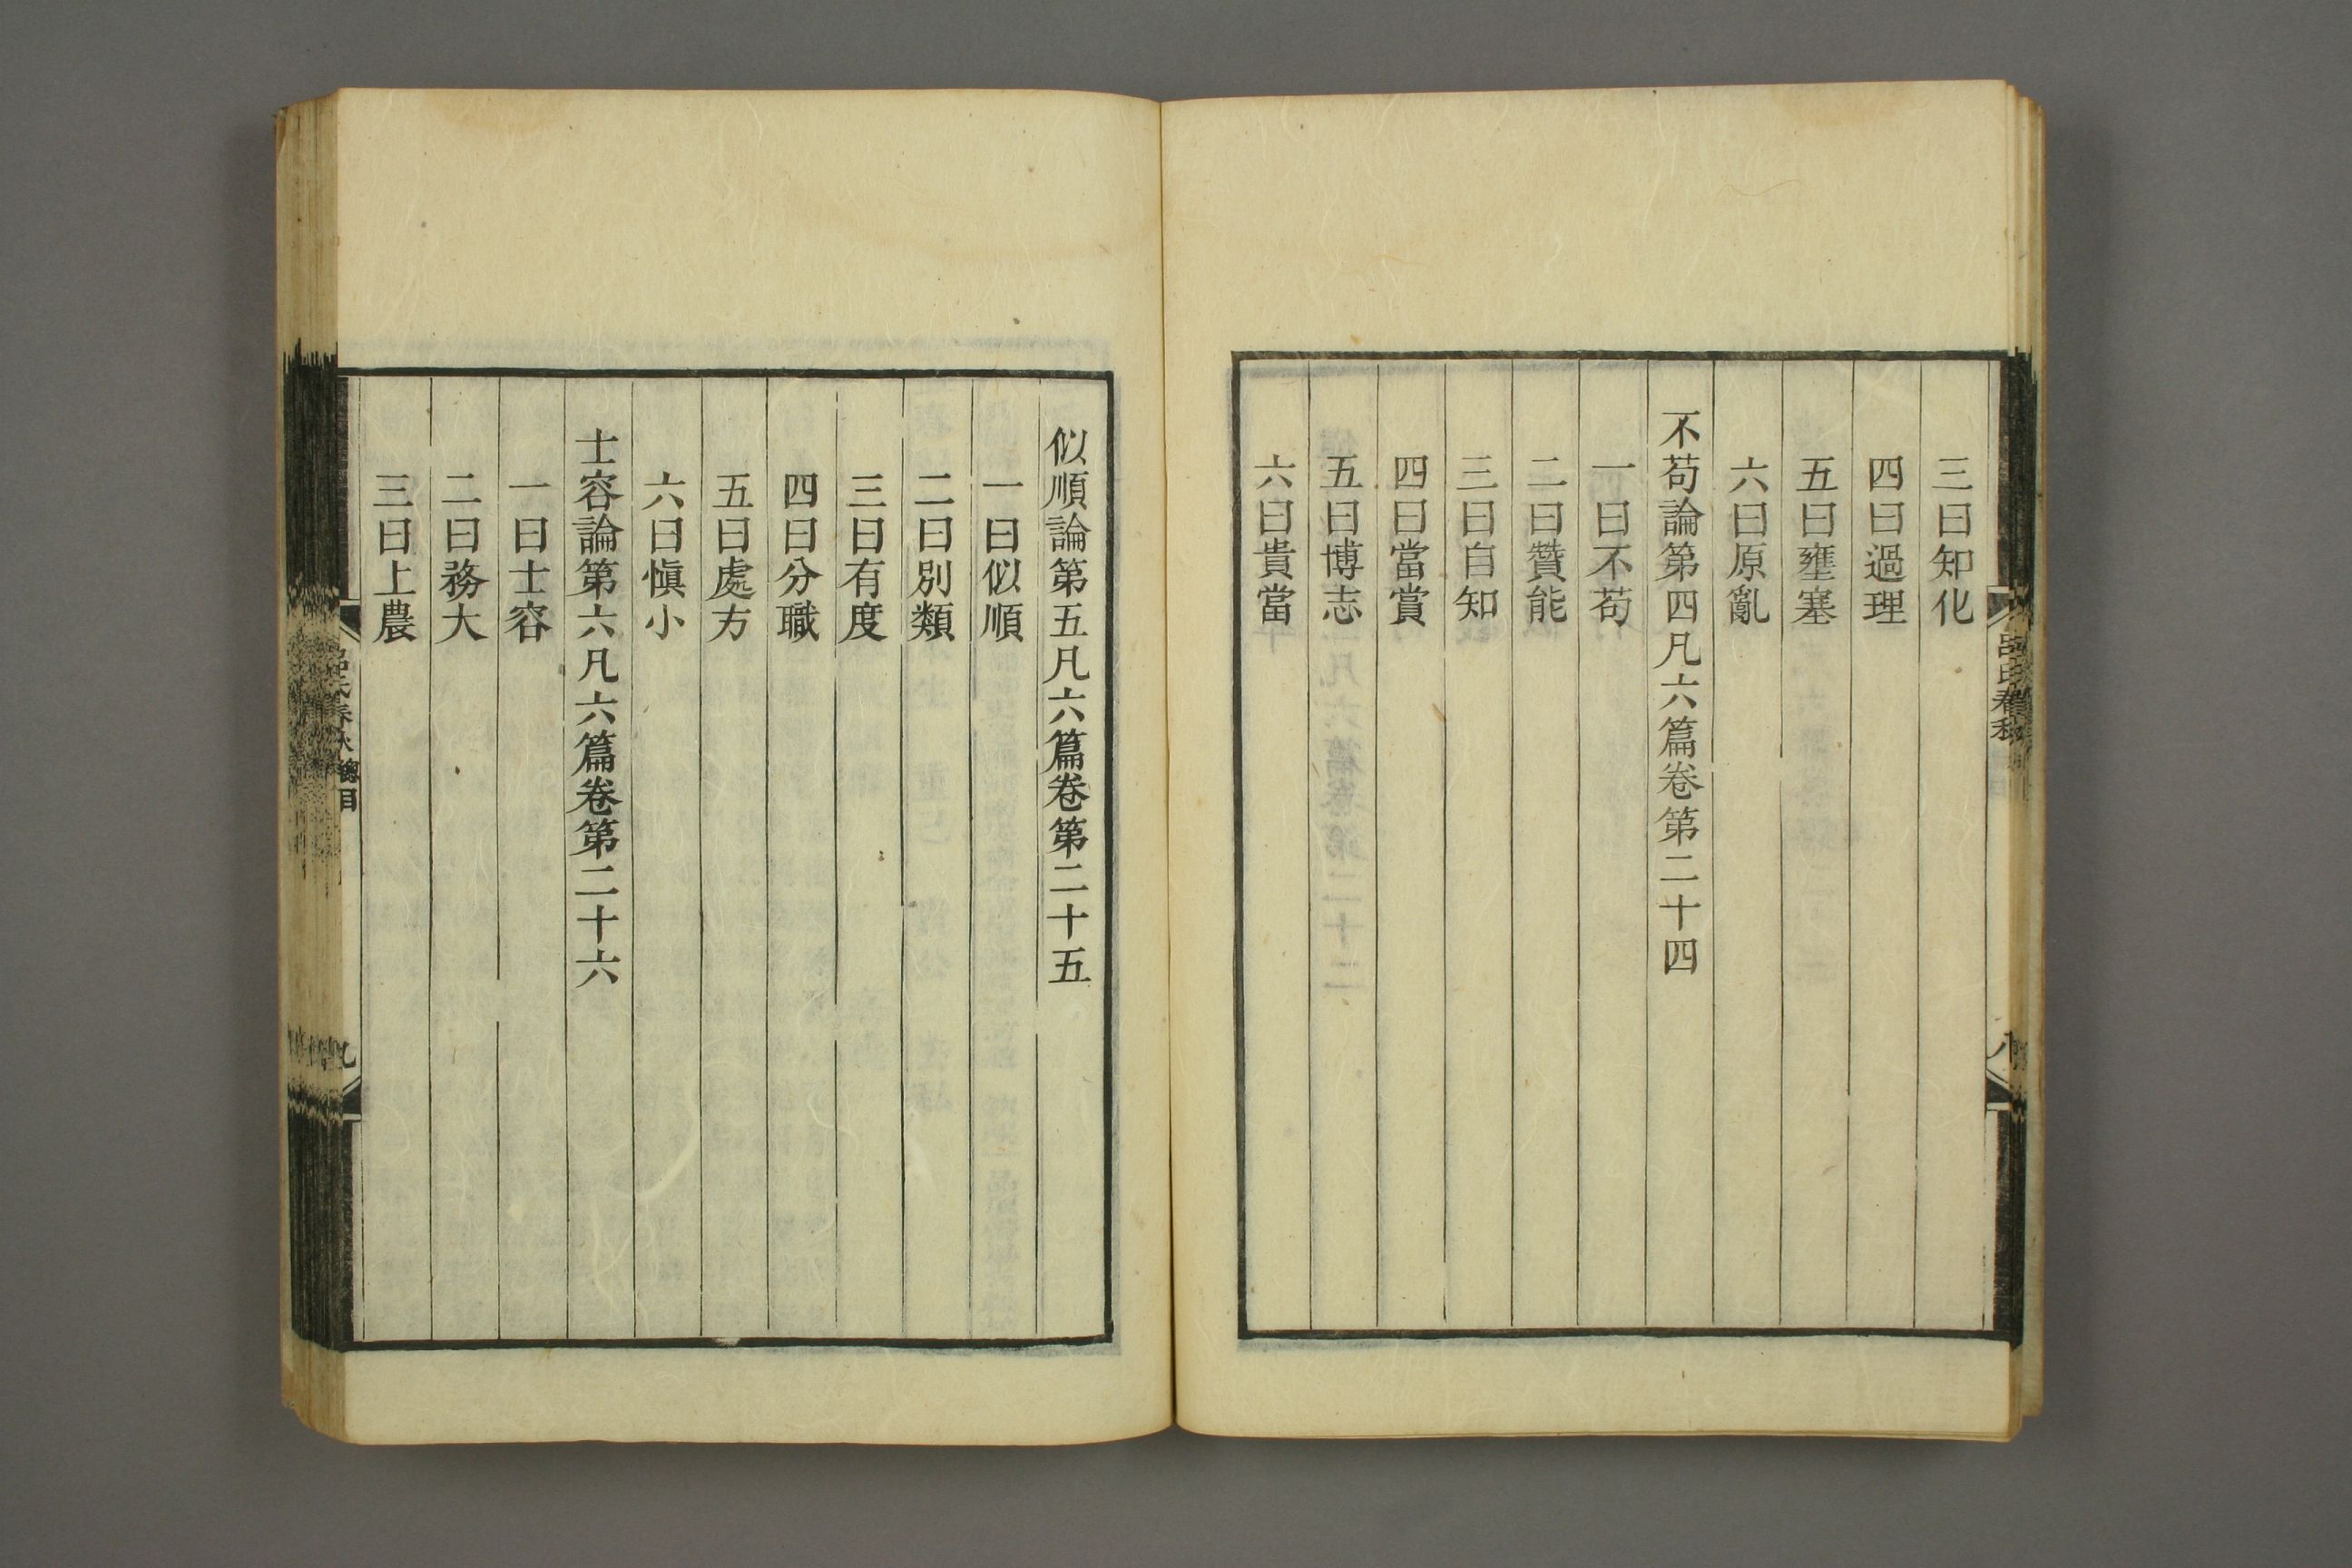 三曰知化
四曰過理
五曰壅塞
六曰原亂
不苟論第四凡六篇卷第二十四
一曰不苟
二曰贊能
三曰自知
四曰當賞
五曰博志
六曰貴當
似順論第五凡六篇卷第二十五
一曰似順
二曰別類
三曰有度
四曰分職
五曰處方
六曰愼小
士容論第六凡六篇卷第二十六
一曰士容
二曰務大
三曰上農
呂氏春秋
八
呂氏春秋 總目
九